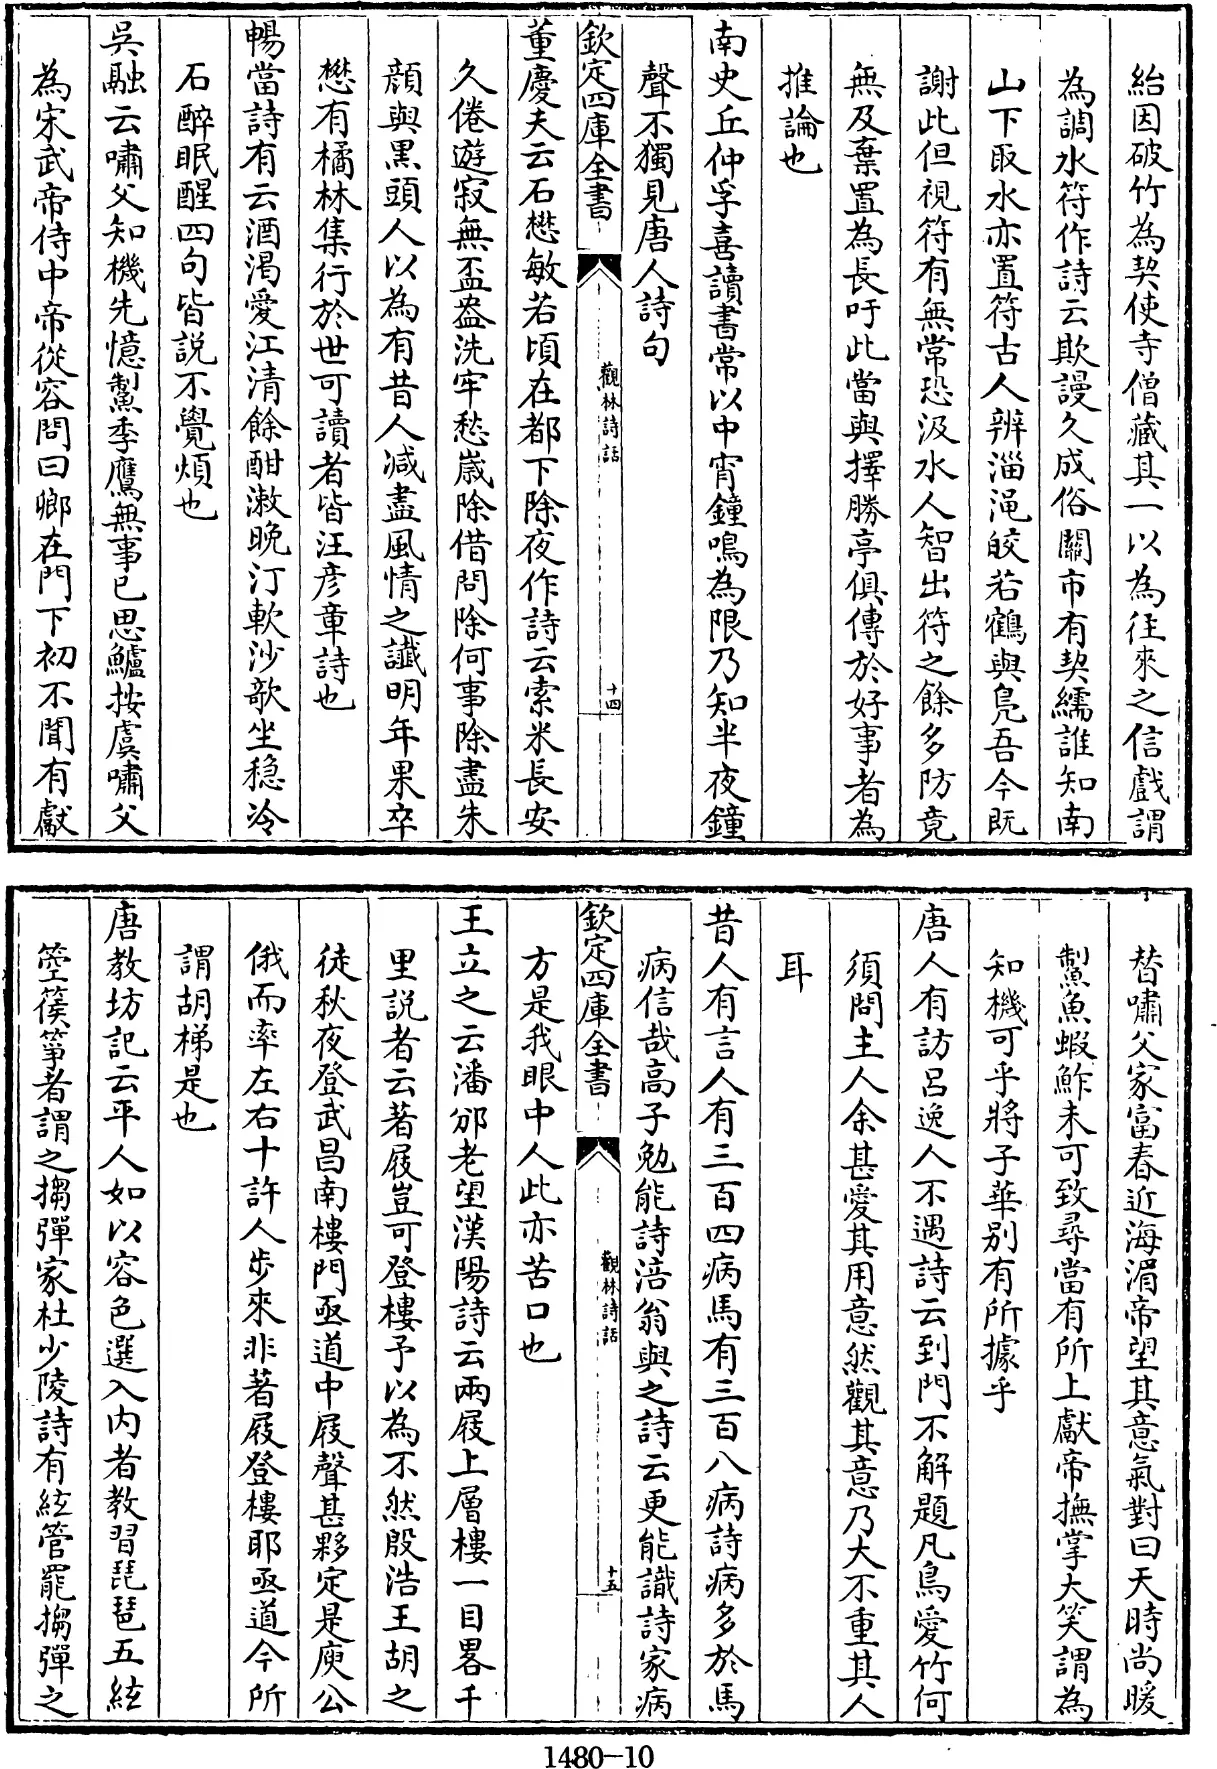 紿因破竹為契使寺僧藏其一以為往來之信戲謂
為調水符作詩云欺謾久成俗關市有契繻誰知南
山下取水亦置符古人辨淄澠皎若鶴與鳧吾今既
謝此但視符有無常恐汲水人智出符之餘多防竟
無及棄置為長吁此當與擇勝亭俱傳於好事者為
推論也
南史丘仲孚喜讀書常以中宵鐘鳴為限乃知半夜鐘
聲不獨見唐人詩句
欽定四庫全書
觀林詩話
十四
董慶夫云石懋敏若頃在都下除夜作詩云索米長安
久倦遊寂無盃盎洗牢愁嵗除借問除何事除盡朱
顔與黒頭人以為有昔人減盡風情之讖明年果卒
懋有橘林集行於世可讀者皆汪彦章詩也
暢當詩有云酒渴愛江清餘酣漱晩汀軟沙欹坐穏冷
石醉眠醒四句皆説不覺煩也
吳融云嘯父知機先憶鮆季鷹無事已思鱸按虞嘯父
為宋武帝侍中帝從容問曰卿在門下初不聞有獻
替嘯父家富春近海湄帝望其意氣對曰天時尚暖
鮆魚蝦鮓未可致尋當有所上獻帝撫掌大笑謂為
知機可乎將子華别有所據乎
唐人有訪呂逸人不遇詩云到門不解題凡鳥愛竹何
須問主人余甚愛其用意然觀其意乃大不重其人
耳
昔人有言人有三百四病馬有三百八病詩病多於馬
病信哉高子勉能詩涪翁與之詩云更能識詩家病
欽定四庫全書
觀林詩話
十五
方是我眼中人此亦苦口也
王立之云潘邠老望漢陽詩云兩屐上層樓一目畧千
里説者云著屐豈可登樓予以為不然殷浩王胡之
徒秋夜登武昌南樓門亟道中屐聲甚夥定是庾公
俄而率左右十許人步來非著屐登樓耶亟道今所
謂胡梯是也
唐教坊記云平人如以容色選入内者教習琵琶五絃
箜篌箏者謂之搊彈家杜少陵詩有絃管罷搊彈之
1480-10